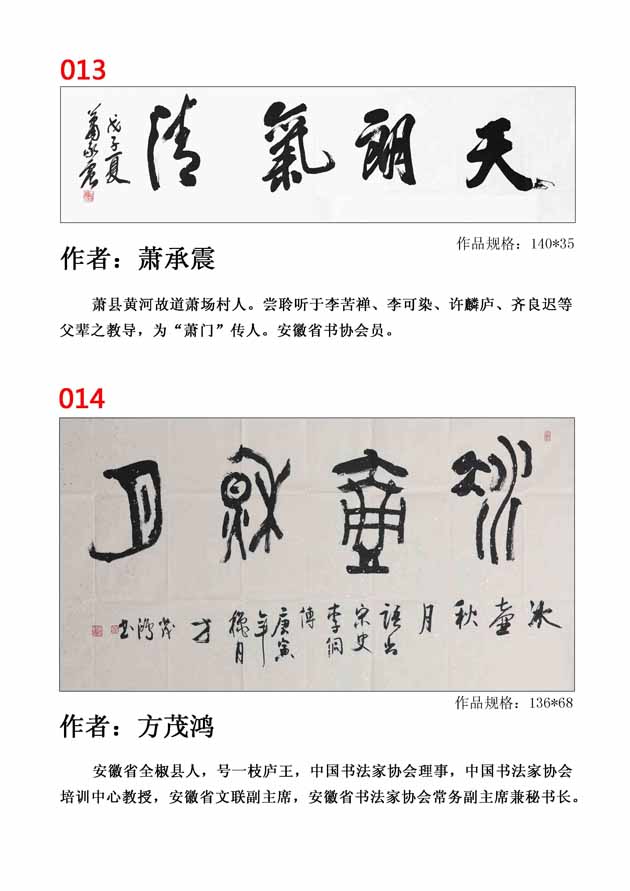 013
天朗氣清
戊子夏
萧承震
作品规格：140*35
作者：萧承震
萧县黄河故道萧场村人。尝聆听于李苦禅、李可染、许麟庐、齐良迟等
父辈之教导，为“萧门”传人。安徽省书协会员。
014
冰壶秋月
冰
壶
秋
月
語出
宋史
李侗
傳
庚寅
年
穐月
方
茂
鸿
书
作品规格：136*68
作者：方茂鸿
安徽省全椒县人，号一枝庐王，中国书法家协会理事，中国书法家协会
培训中心教授，安徽省文联副主席，安徽省书法家协会常务副主席兼秘书长。